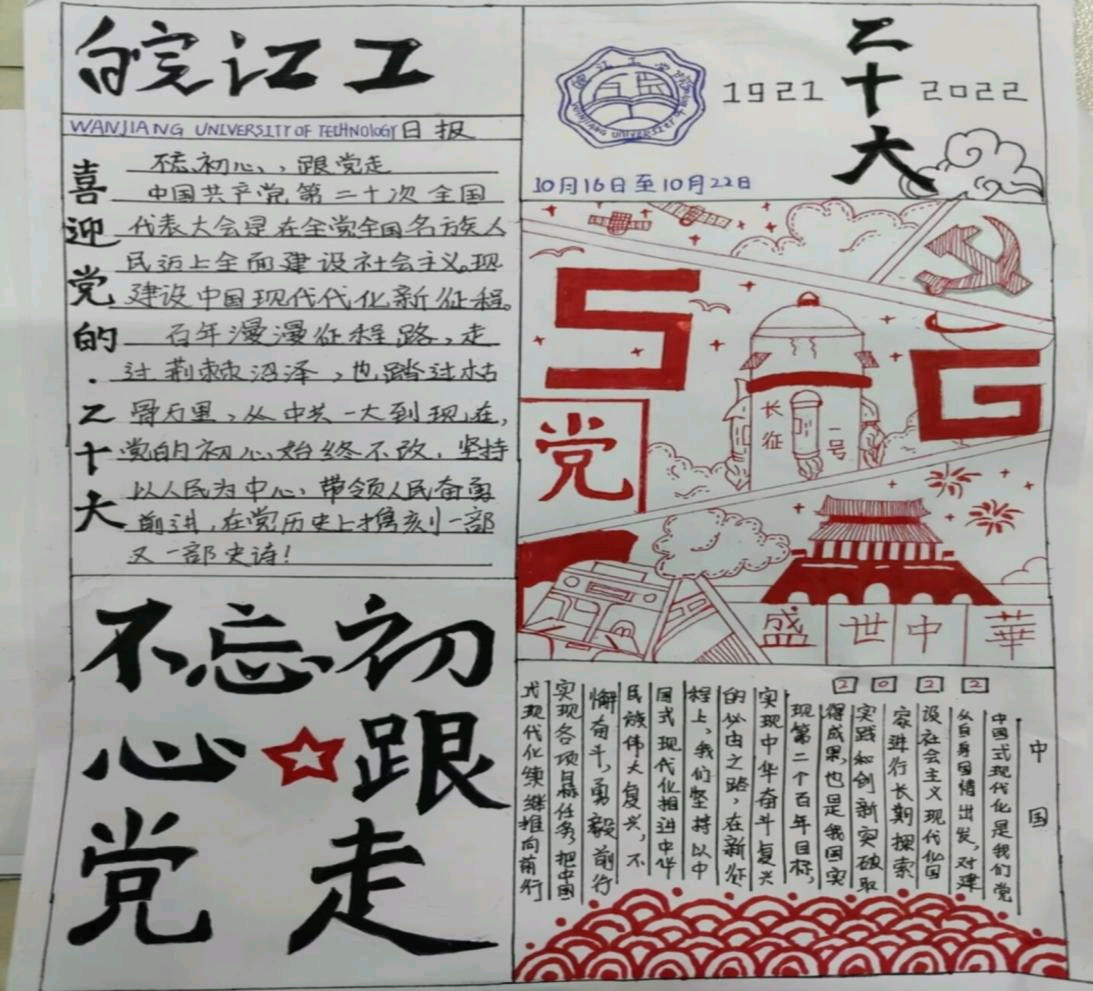 皖江工
WANJIANG UNIVERSITY OF TECHNOLOGY日报
喜迎党的·二十大
不忘初心,跟党走
中国共产党第二十次全国
代表大会是在全党全国各方族人
民迈上全面建设社会主义。现
建设中国现代代化新征程。
百年漫漫征程路,走
过荆棘沼泽,也踏过枯
骨万里,从中共一大到现在,
党的初心始终不改,坚持
以人民为中心,带领人民奋勇
前进,在党历史上携刻一部
又一部史诗!
不忘初
心跟
党走
皖江工学院
WANJIANG UNIVERSITY
1921
二十大
2022
10月16日至10月22日
5G
长征
一号
党
盛世中華
2022
中国
中国式现代化是我们党
从自身国情出发,对建
设社会主义现代化国
家进行长期探索
实践和创新突破取
得成果,也是我国实
现第二个百年目标,
实现中华奋斗复兴
的必由之路,在新征
程上,我们坚持以中
国式现代化相进中华
民族伟大复兴,不
懈奋斗,勇毅前行
实现各项目标任务,把中国
式现代化续继推向前行